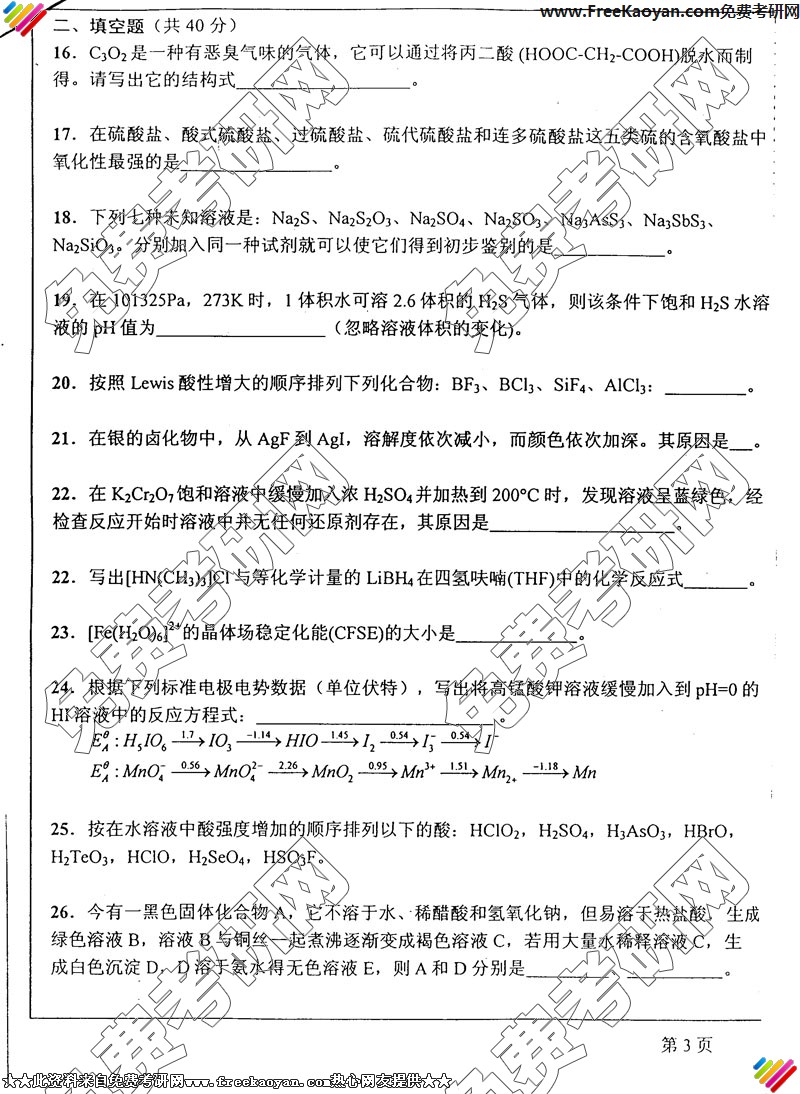 www.FreeKaoyan.com免费考研网
二、填空题（共 40 分）
16．C3O2 是一种有恶臭气味的气体，它可以通过将丙二酸 (HOOC-CH2-COOH)脱水而制
得。请写出它的结构式＿＿＿＿＿＿。
17．在硫酸盐、酸式硫酸盐、过硫酸盐、硫代硫酸盐和连多硫酸盐这五类硫的含氧酸盐中
氧化性最强的是＿＿＿＿＿＿。
18．下列七种未知溶液是：Na2S、Na2S2O3、Na2SO4、Na2SO3、Na3AsS3、Na3SbS3、
Na2SiO3。分别加入同一种试剂就可以使它们得到初步鉴别的是＿＿＿＿＿＿。
19．在 101325Pa，273K 时，1 体积水可溶 2.6 体积的 H2S 气体，则该条件下饱和 H2S 水溶
液的 pH 值为＿＿＿＿＿＿（忽略溶液体积的变化)。
20．按照 Lewis 酸性增大的顺序排列下列化合物：BF3、BCl3、SiF4、AlCl3：＿＿＿＿。
21．在银的卤化物中，从 AgF 到 AgI，溶解度依次减小，而颜色依次加深。其原因是＿。
22．在 K2Cr2O7 饱和溶液中缓慢加入浓 H2SO4 并加热到 200°C 时，发现溶液呈蓝绿色，经
检查反应开始时溶液中并无任何还原剂存在，其原因是＿＿＿＿＿＿。
22．写出[HN(CH3)3]Cl 与等化学计量的 LiBH4 在四氢呋喃(THF)中的化学反应式＿＿＿。
23．[Fe(H2O)6]2+ 的晶体场稳定化能(CFSE)的大小是＿＿＿＿＿＿。
24．根据下列标准电极电势数据（单位伏特），写出将高锰酸钾溶液缓慢加入到 pH=0 的
HI 溶液中的反应方程式：＿＿＿＿＿＿。
EAθ : H5IO6 —1.7→ IO3− —1.14→ HIO —1.45→ I2 —0.54→ I3− —0.54→ I−
EAθ : MnO4− —0.56→ MnO42− —2.26→ MnO2 —0.95→ Mn3+ —1.51→ Mn2+ —-1.18→ Mn
25．按在水溶液中酸强度增加的顺序排列以下的酸：HClO2，H2SO4，H3AsO3，HBrO，
H2TeO3，HClO，H2SeO4，HSO3F。
26．今有一黑色固体化合物 A，它不溶于水、稀醋酸和氢氧化钠，但易溶于热盐酸，生成
绿色溶液 B，溶液 B 与铜丝一起煮沸逐渐变成褐色溶液 C，若用大量水稀释溶液 C，生
成白色沉淀 D，D 溶于氨水得无色溶液 E，则 A 和 D 分别是＿＿＿＿ ＿＿＿＿。
第 3 页
★★此资料来自免费考研网www.freekaoyan.com热心网友提供★★
免费考研网
免费考研网
免费考研网
免费考研网
免费考研网
免费考研网